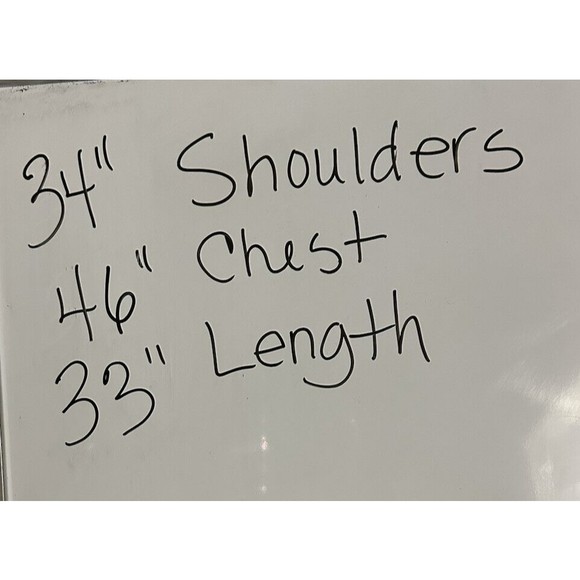 34" Shoulders
46" Chest
33" Length